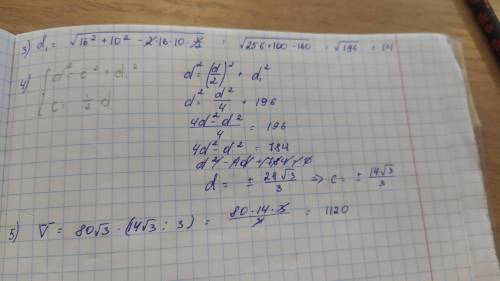 3) d₁ = √(16² + 10² - 2·16·10·½) = √(256+100-160) = √196 = 14
4) { d² = c² + d₁²
c = 1/2 d
d² = (d/2)² + d₁²
d² = d²/4 + 196
(4d² - d²)/4 = 196
4d² - d² = 784
d = ± 28√3/3 => c = ± 14√3/3
5) V = 80√3 · (14√3 : 3) = (80·14·3)/3 = 1120